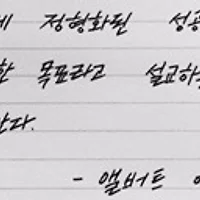 게 정형화된 성공
한 목표라고 설교하
한다.
- 앨버트 아